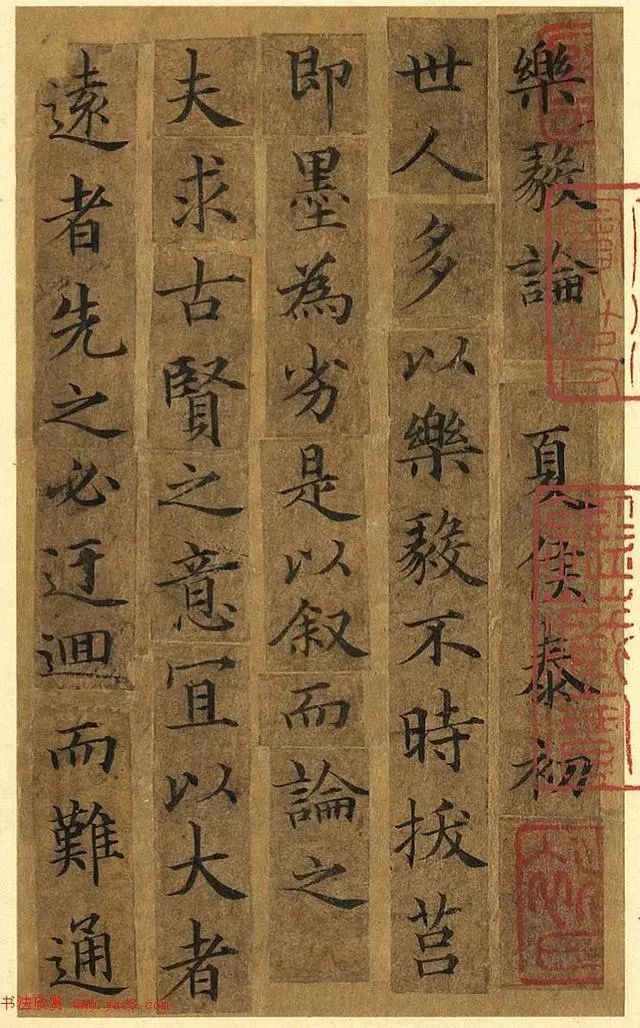 樂毅論 夏侯泰初
世人多以樂毅不時拔莒
即墨為劣是以叙而論之
夫求古賢之意宜以大者
遠者先之必迂迴而難通
书法欣赏 www.yac8.com